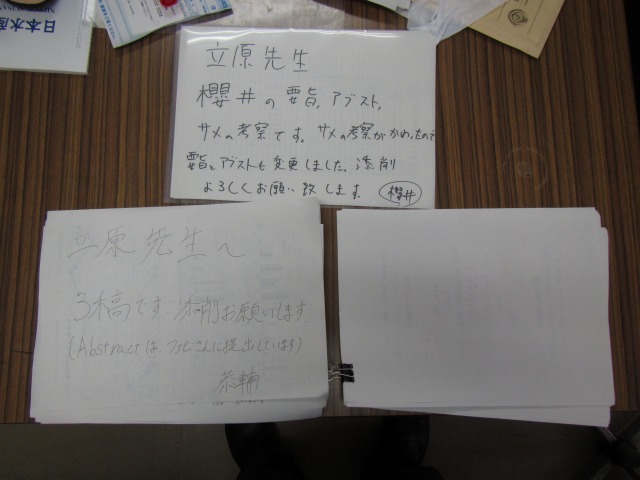 日本水産
立原先生
櫻井の要旨,アブスト,
サメの考察です。サメの考察がかわったので
要旨とアブストも変更しました。添削
よろしくお願い致します 櫻井
立原先生へ
3稿です。添削お願いします。
(Abstractは、さんに提出しています)
恭輔